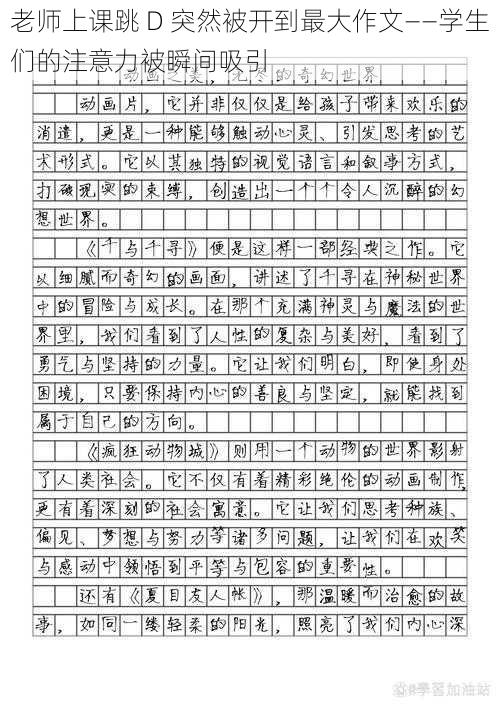 老师上课跳 D 突然被开到最大作文——学生
们的注意力被瞬间吸引
动画之美，无尽的奇幻世界
动画片，它并非仅仅是给孩子带来欢乐的
消遣，更是一种能够触动心灵、引发思考的艺
术形式。它以其独特的视觉语言和叙事方式，
打破现实的束缚，创造出一个个令人沉醉的幻
想世界。
《千与千寻》便是这样一部经典之作。它
以细腻而奇幻的画面，讲述了千寻在神秘世界
中的冒险与成长。在那个充满神灵与魔法的世
界里，我们看到了人性的复杂与美好，看到了
勇气与坚持的力量。它让我们明白，即使身处
困境，只要保持内心的善良与坚定，就能找到
属于自己的方向。
《疯狂动物城》则用一个动物的世界影射
了人类社会。它不仅有着精彩绝伦的动画制作，
更有着深刻的社会寓意。它让我们思考种族、
偏见、梦想与努力等诸多问题，让我们在欢笑
与感动中领悟到平等与包容的重要性。
还有《夏目友人帐》，那温暖而治愈的故
事，如同一缕轻柔的阳光，照亮了我们内心深
學習加油站